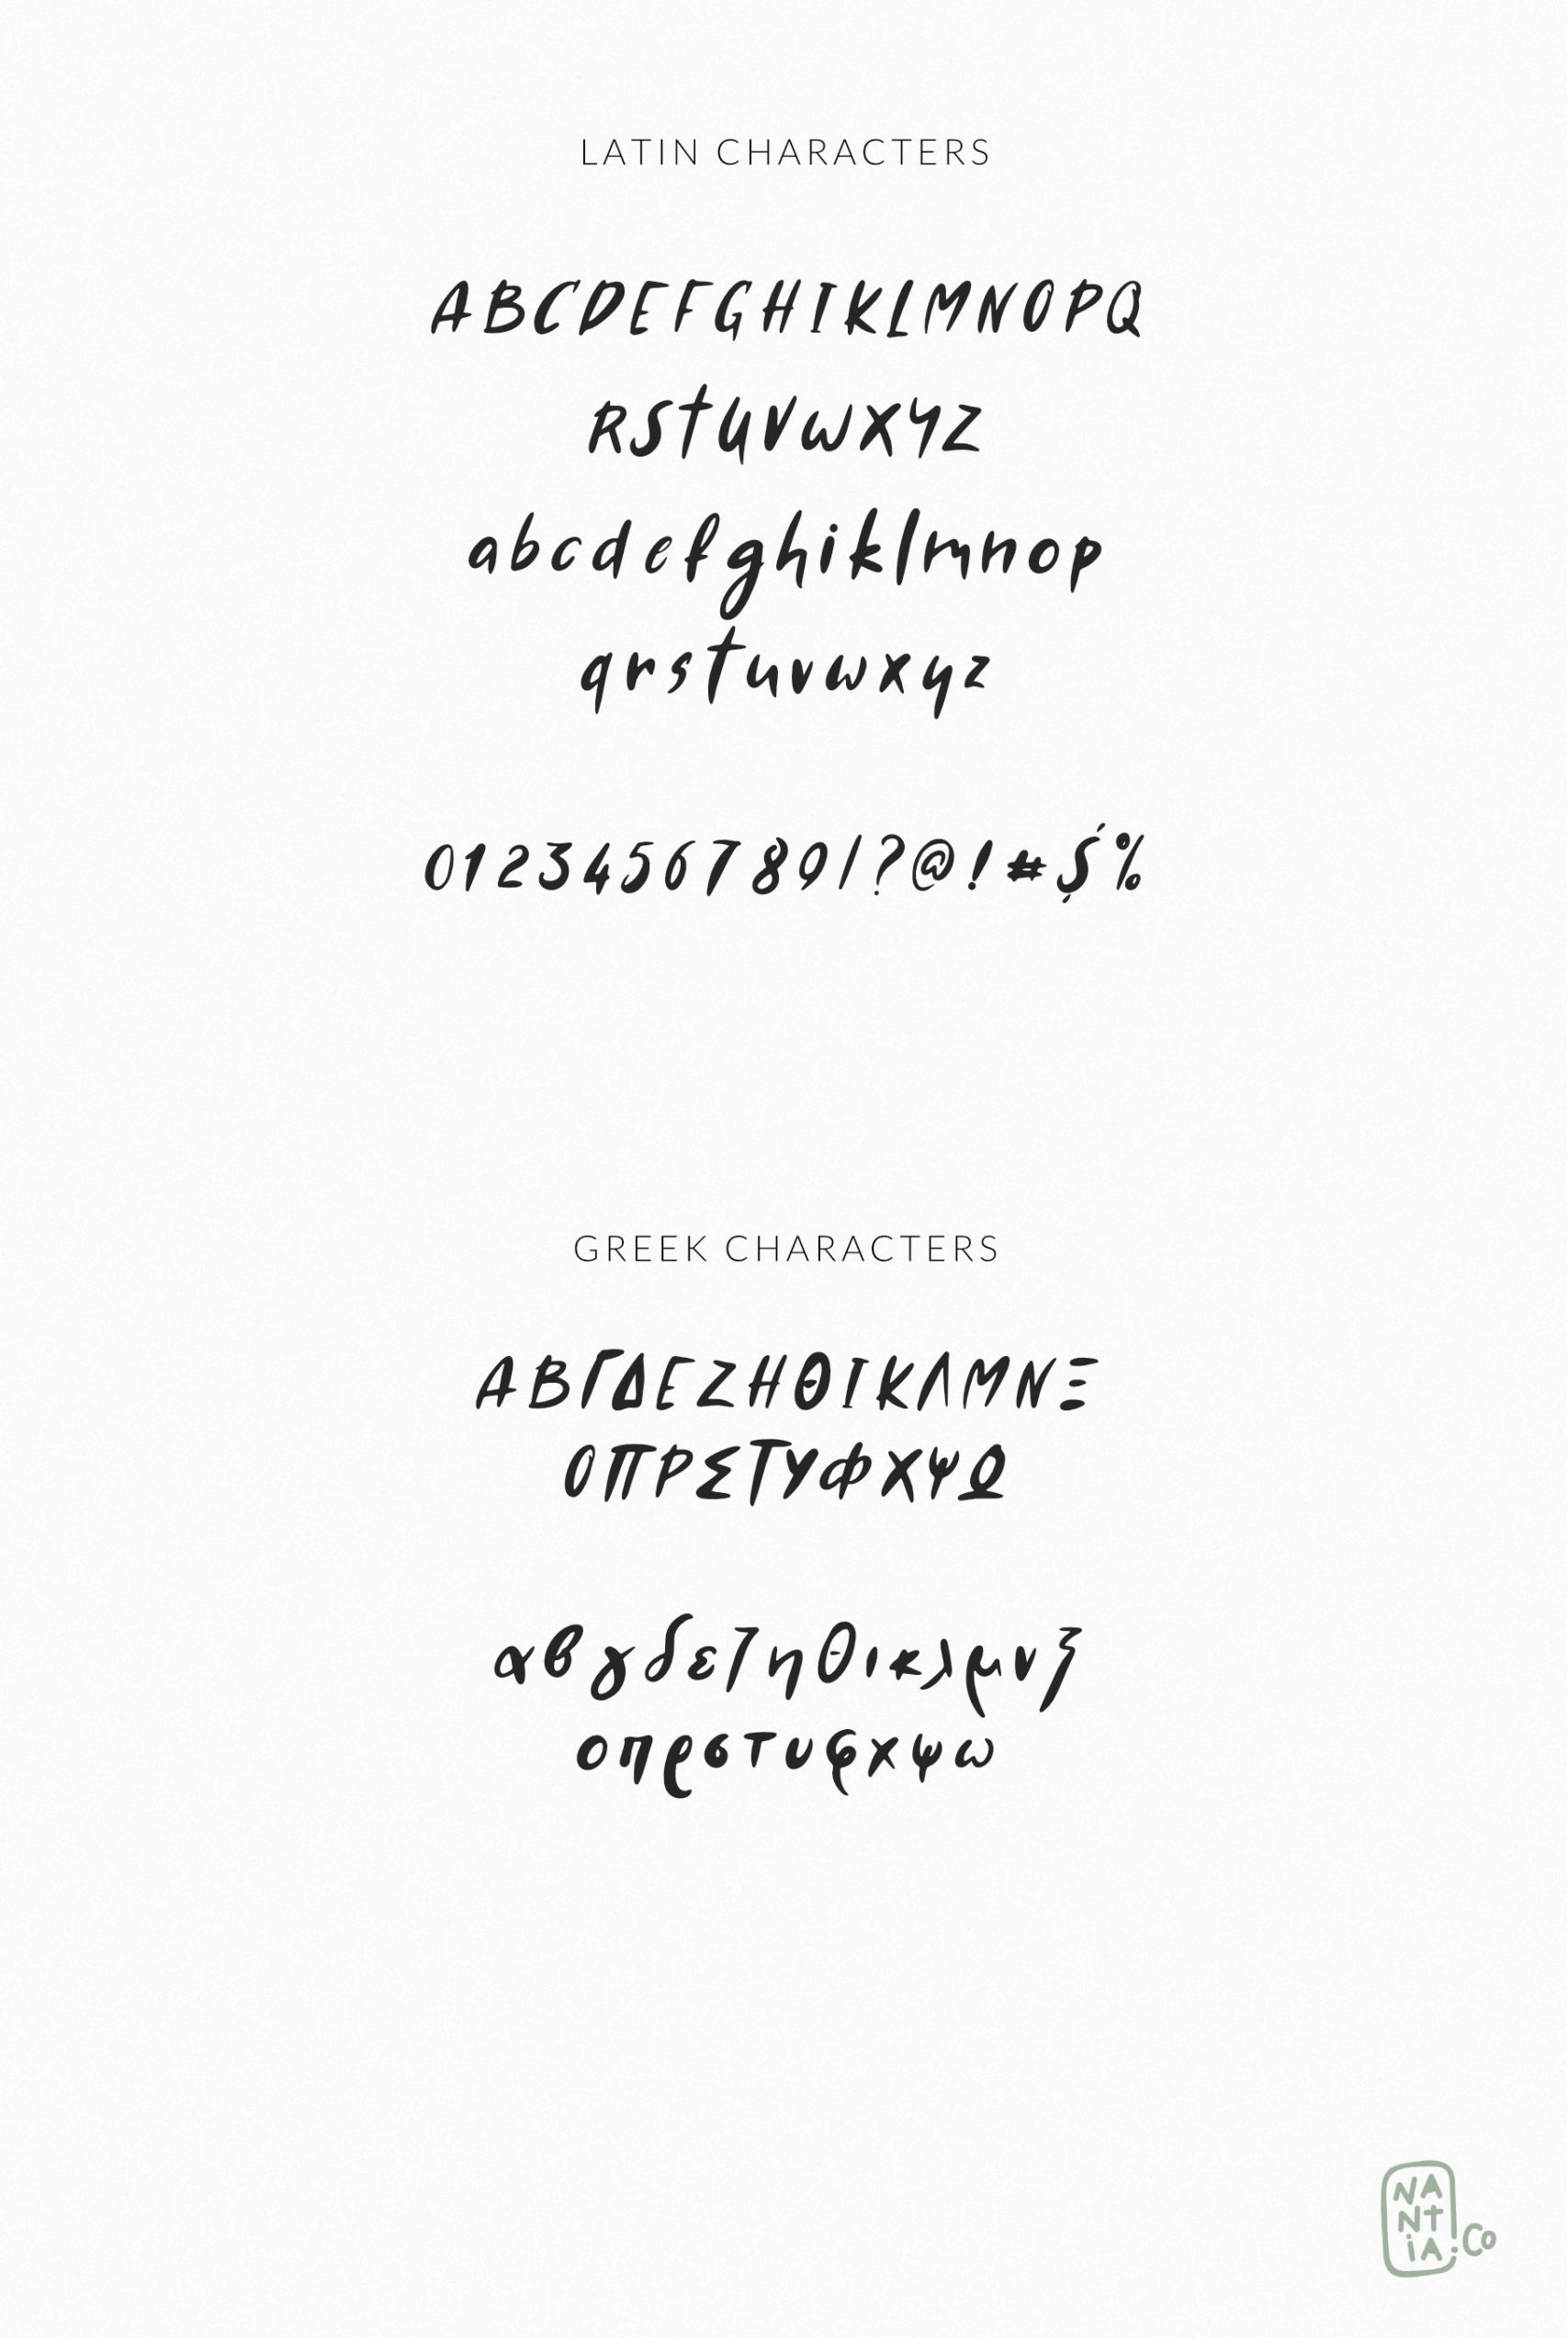 LATIN CHARACTERS
ABCDEFGHIKLMNOPQ
RSTUVWXYZ
abcdefghiklmnop
qrstuvwxyz
0123456789/?@!#$%
GREEK CHARACTERS
ΑΒΓΔΕΖΗΘΙΚΛΜΝΞ
ΟΠΡΣΤΥΦΧΨΩ
αβγδεζηθικλμνξ
οπρστυφχψω
NA
Nt
iA.Co